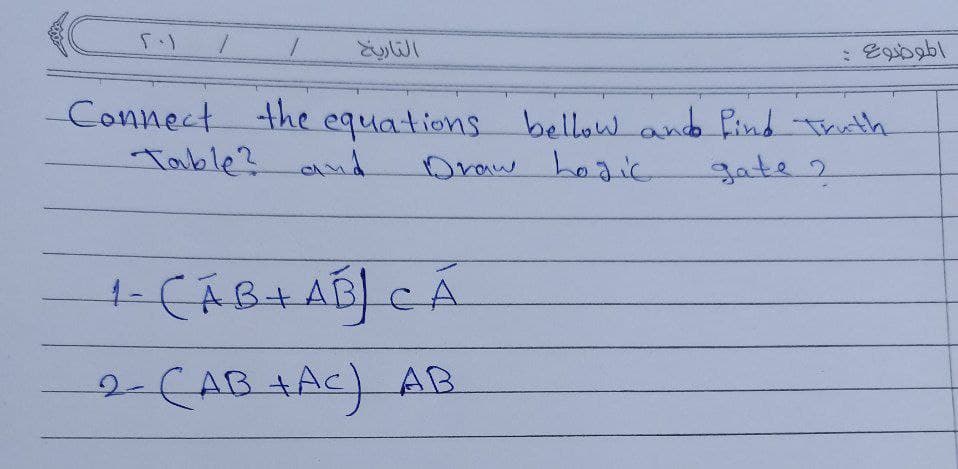 الموضوع : التاريخ / / ٢٠١
Connect the equations bellow and find Truth
Table? and Draw Logic gate?
1- (ĀB + AB̄) C Ā
2- (AB + AC) AB